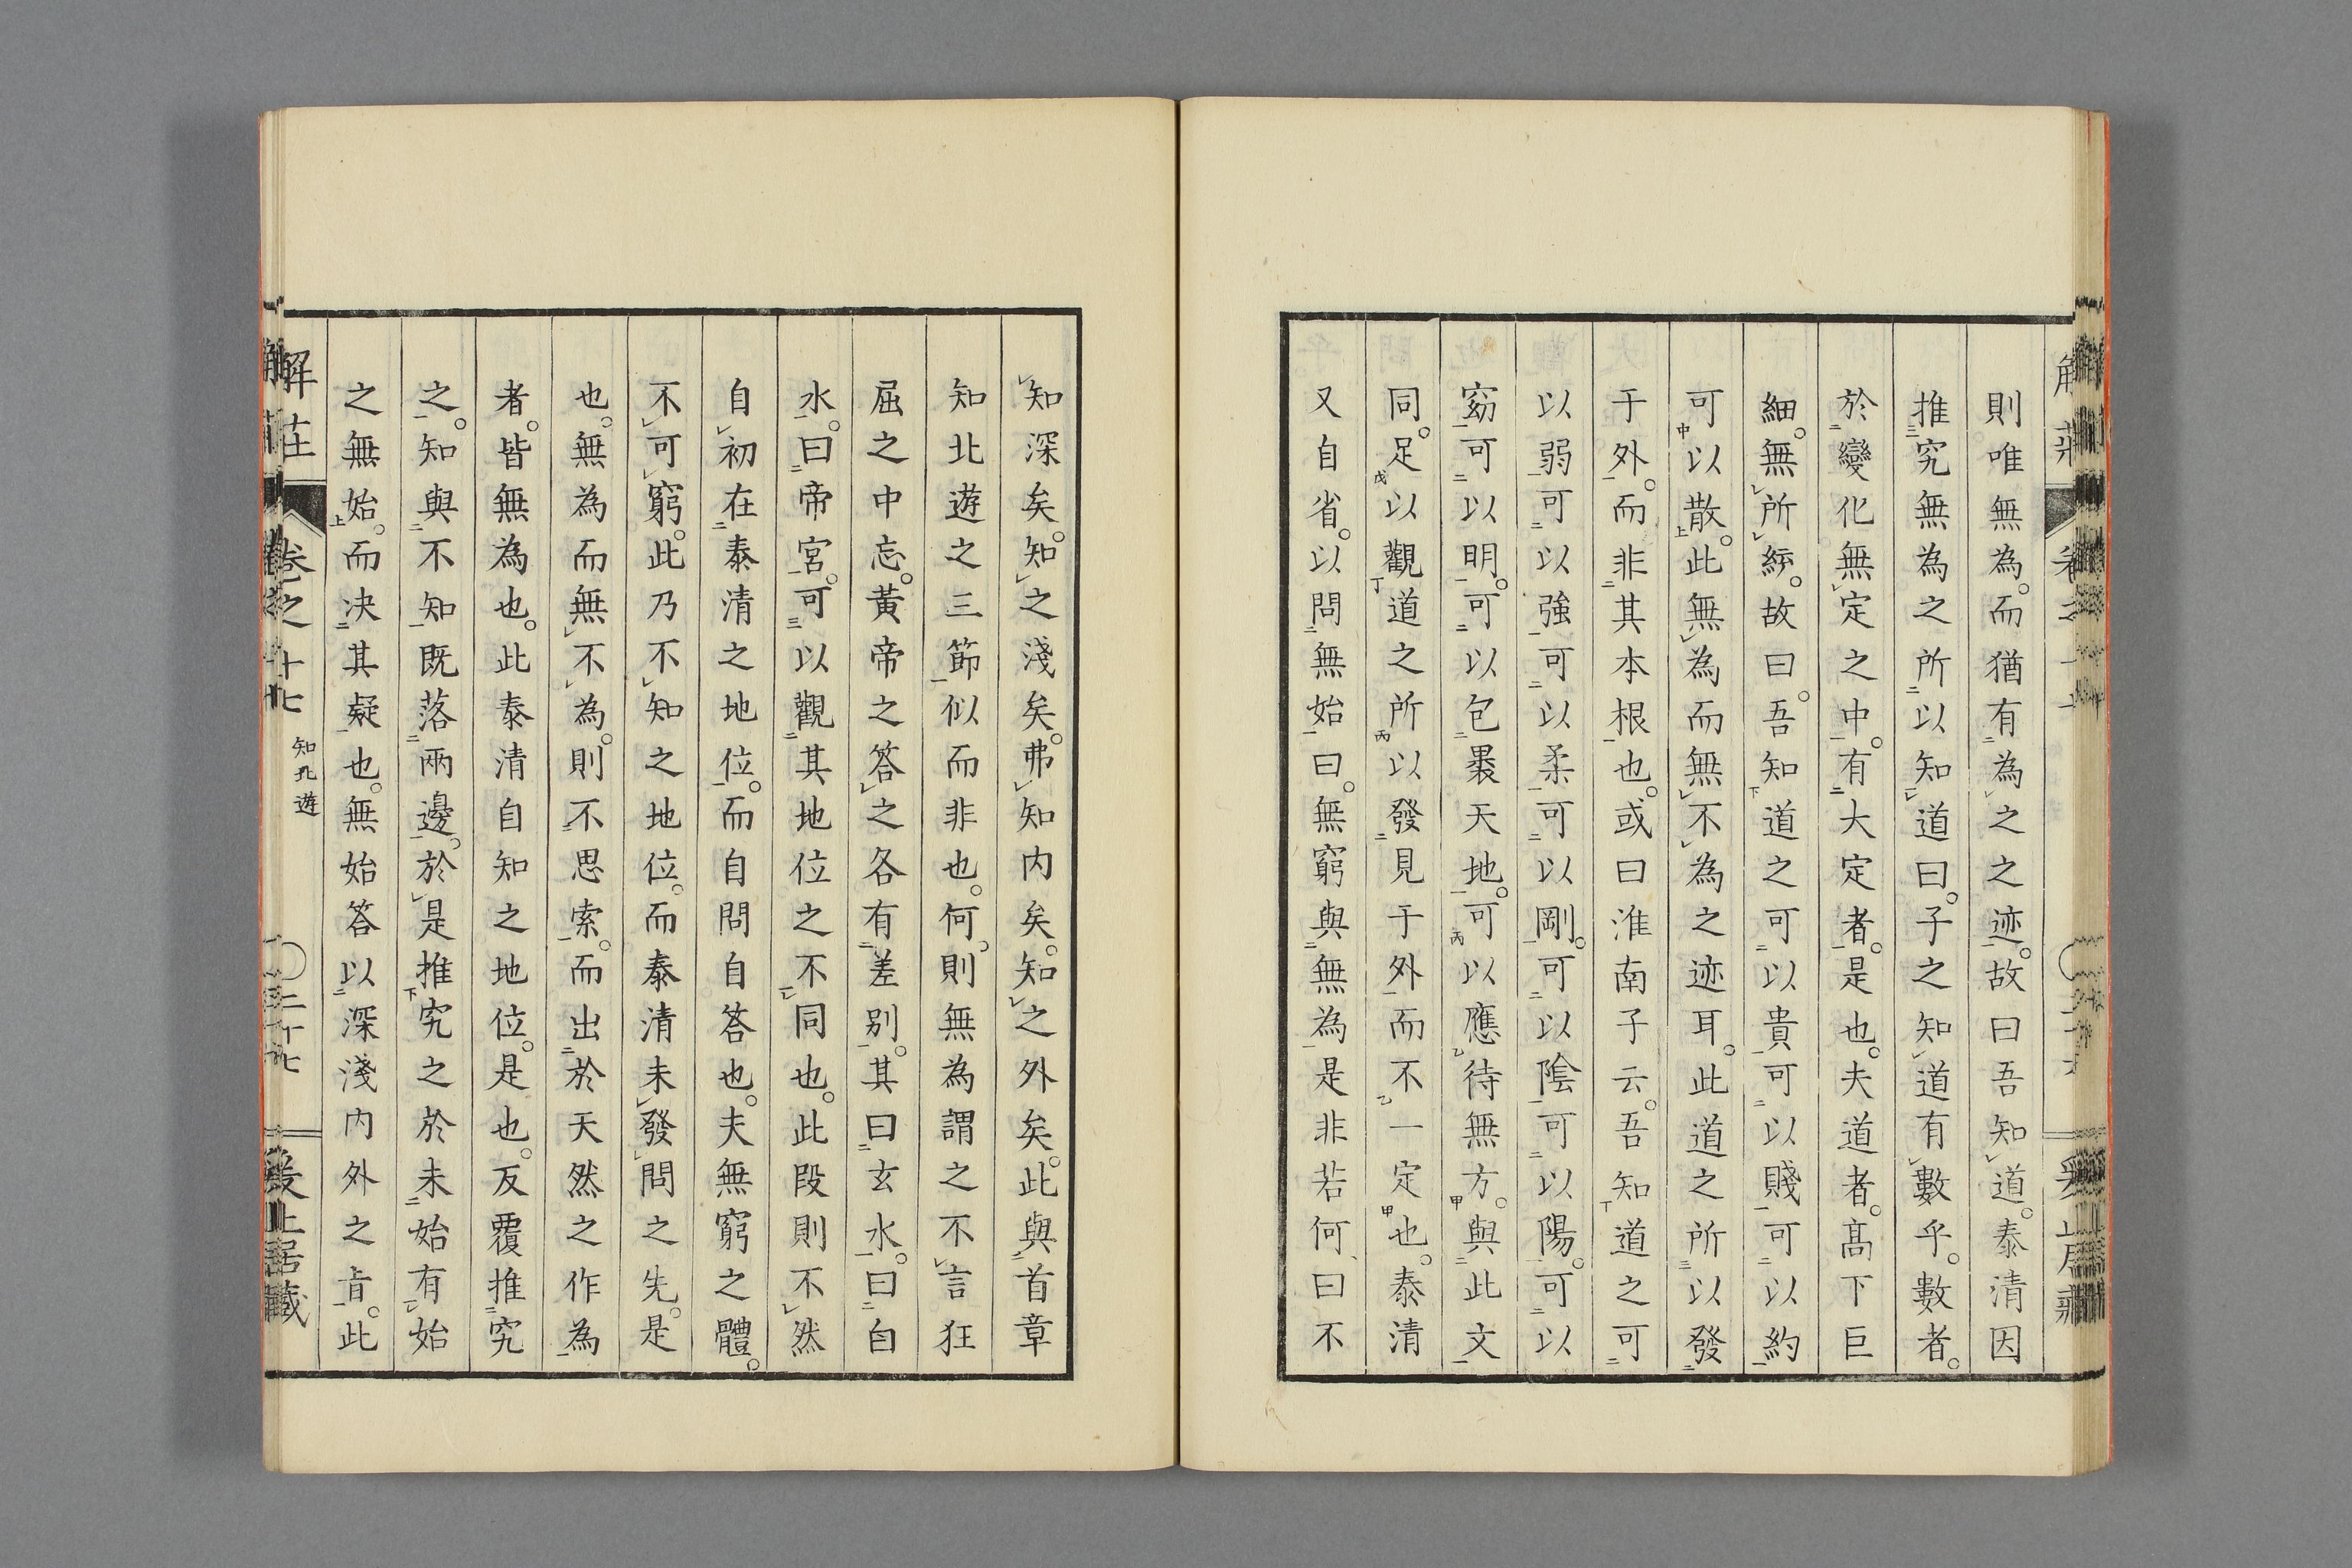 則唯無為。而猶有為之之迹。故曰吾知道。泰清因
推究無為之所以知道曰。子之知道有數乎。數者。
於變化無定之中。有大定者。是也。夫道者。髙下巨
細。無所紘。故曰。吾知道之可以貴可以賤可以約
可以散。此無為而無不為之迹耳。此道之所以發
于外。而非其本根也。或曰淮南子云。吾知道之可
以弱可以強可以柔可以剛。可以陰可以陽。可以
窈可以明。可以包褁天地。可以應待無方。與此文
同。足以觀道之所以發見于外而不一定也。泰清
又自省。以問無始曰。無窮與無為是非若何、曰不
知深矣。知之淺矣。弗知内矣。知之外矣。此與首章
知北遊之三節似而非也。何則無為謂之不言狂
屈之中忘。黃帝之答之各有差別。其曰玄水。曰白
水。曰帝宮。可以觀其地位之不同也。此段則不然
自初在泰清之地位。而自問自答也。夫無窮之體。
不可窮。此乃不知之地位。而泰清未發問之先。是
也。無為而無不為。則不思索。而出於天然之作為
者。皆無為也。此泰清自知之地位。是也。反覆推究
之。知與不知既落兩邊。於是推究之於未始有始
之無始。而決其疑也。無始答以深淺内外之㫖。此
解莊
卷之十七
知北遊
二十七